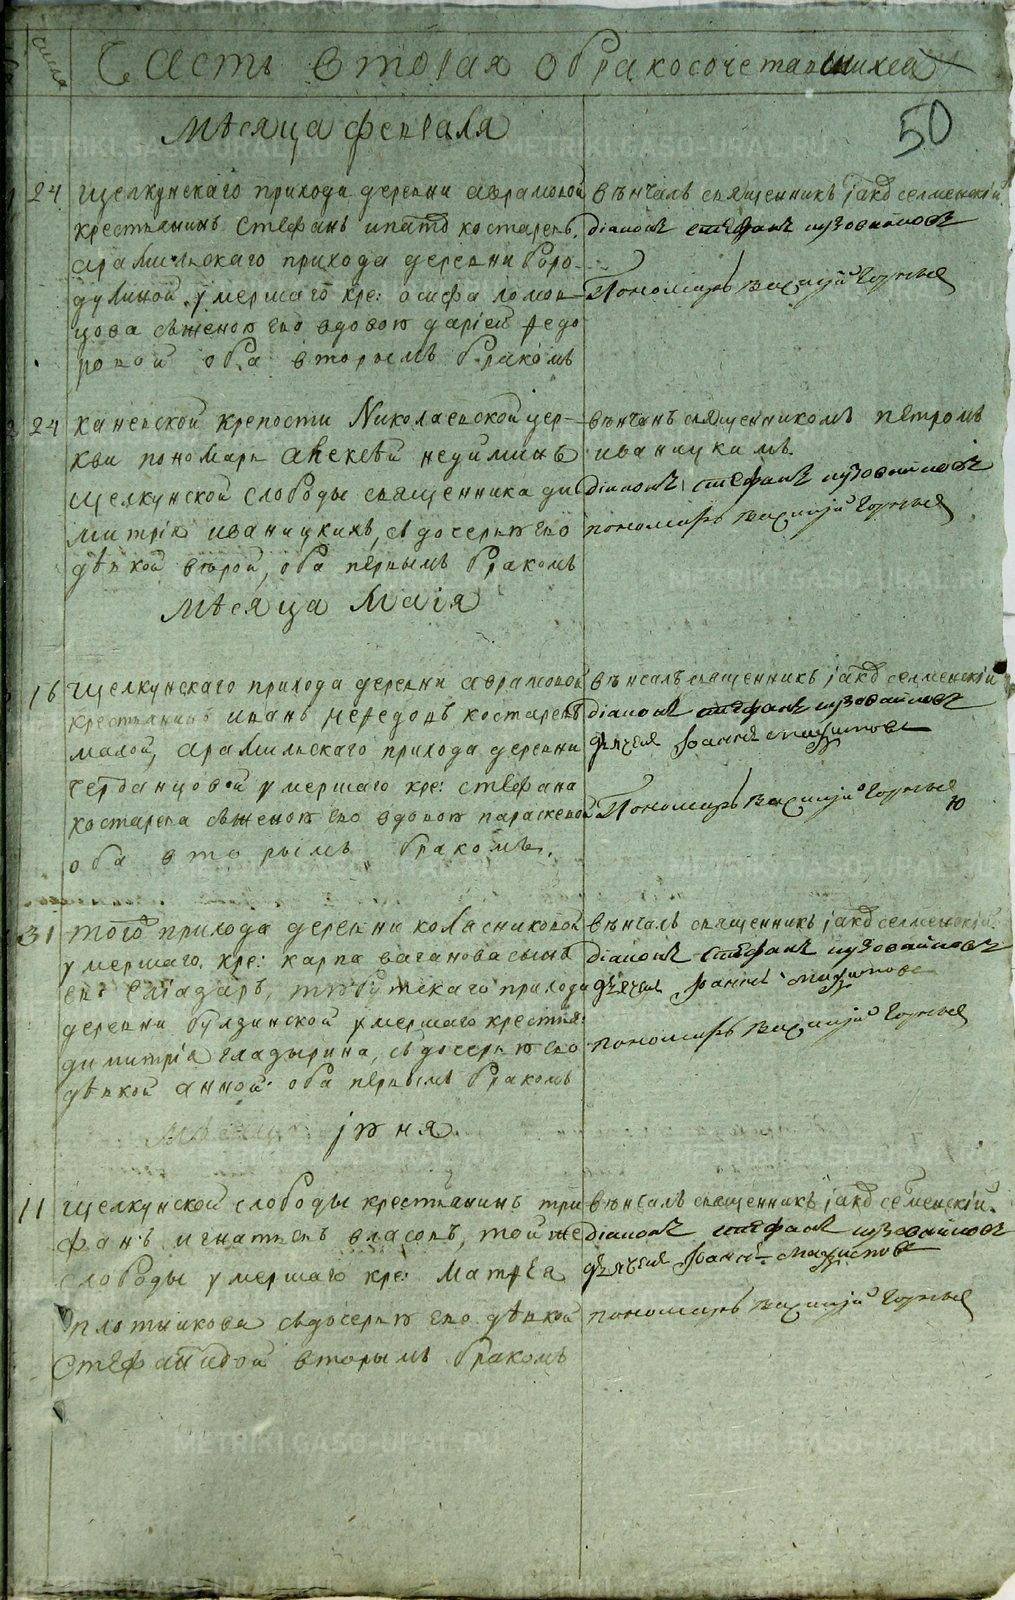 числа
Часть вторая о бракосочетавшихся
50
Мѣсяца февраля
24 Щелкунскаго прихода деревни аврамовой
крестьянинъ Стефанъ ипатов костаревъ,
арамильскаго прихода деревни Боро-
дулиной умершаго кре: осифа ломов-
цова съ женою ево вдовою дарiей федо
ровой оба вторымъ бракомъ
вѣнчалъ священникъ іаков селменскій.
діаконъ стефанъ
Пономарь василій Горныхъ
24 каневской крепости Николаевской цер-
кви пономарь алексѣй недиминъ
Щелкунской слободы священника ди
митрія иваницкихъ, съ дочерью ево
дѣвкой вѣрой, оба первымъ бракомъ
вѣнчанъ священникомъ петромъ
иваницкимъ.
діаконъ стефанъ
пономарь василій Горныхъ
Мѣсяца Маія
16 Щелкунскаго прихода деревни аврамовой
крестьянинъ иванъ нефедовъ костаревъ
малой, арамильскаго прихода деревни
черданцовой умершаго кре: стефана
костарева съ женою ево вдовою параскевой
оба вторымъ бракомъ.
вѣнчалъ священникъ іаков селменскій
діаконъ стефанъ
дьячекъ Іоаннъ
Пономарь василій Горныхъ
31 того прихода деревни колясниковой
умершаго кре: карпа ваганова сынъ
ево елиазаръ, тюбутскаго прихода
деревни булзинской умершаго крестья:
димитрія гладырина, съ дочерью ево
дѣвкой анной: оба первымъ бракомъ
вѣнчалъ священникъ іаков селменскій.
діаконъ стефанъ
дьячекъ Іоаннъ
пономарь василій Горныхъ
Мѣсяца Іюня
11 Щелкунской слободы крестьянинъ три
фанъ игнатьевъ власовъ, той же
слободы умершаго кре: Матфея
плотникова съ дочерью ево дѣвкой
Стефанидой вторымъ бракомъ
вѣнчалъ священникъ іаков селменскій.
діаконъ стефанъ
дьячекъ Іоаннъ
пономарь василій Горныхъ
METRIKI.GASO-URAL.RU